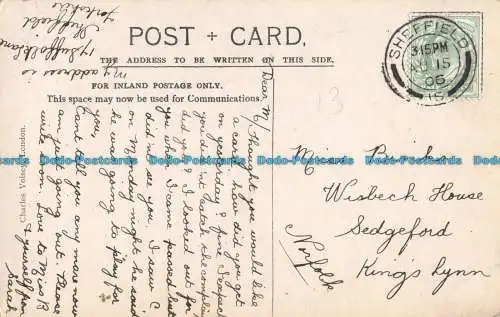 POST + CARD.
THE ADDRESS TO BE WRITTEN ON THIS SIDE.
FOR INLAND POSTAGE ONLY.
This space may now be used for Communications.
Charles Voisey, London.
SHEFFIELD
3.15PM
15
05
13
Miss
Wisbech House
Sedgeford
King's Lynn
Norfolk
My address is
17 Suffolk Lane
Sheffield
Yorkshire
Dear M/ thought you would like
a card, how did you get
on yesterday?
you didn't catch the
did you? I looked out for
you when I came passed but
did not see you. I saw C
on Monday night he said
he was going to play for
you.
Cant tell you any more now
am just going out. Please
write soon. Love to Miss B
& yourself from
Sarah
Dodo-Postcards Dodo-Postcards Dodo-Postcards Dodo-Postcards